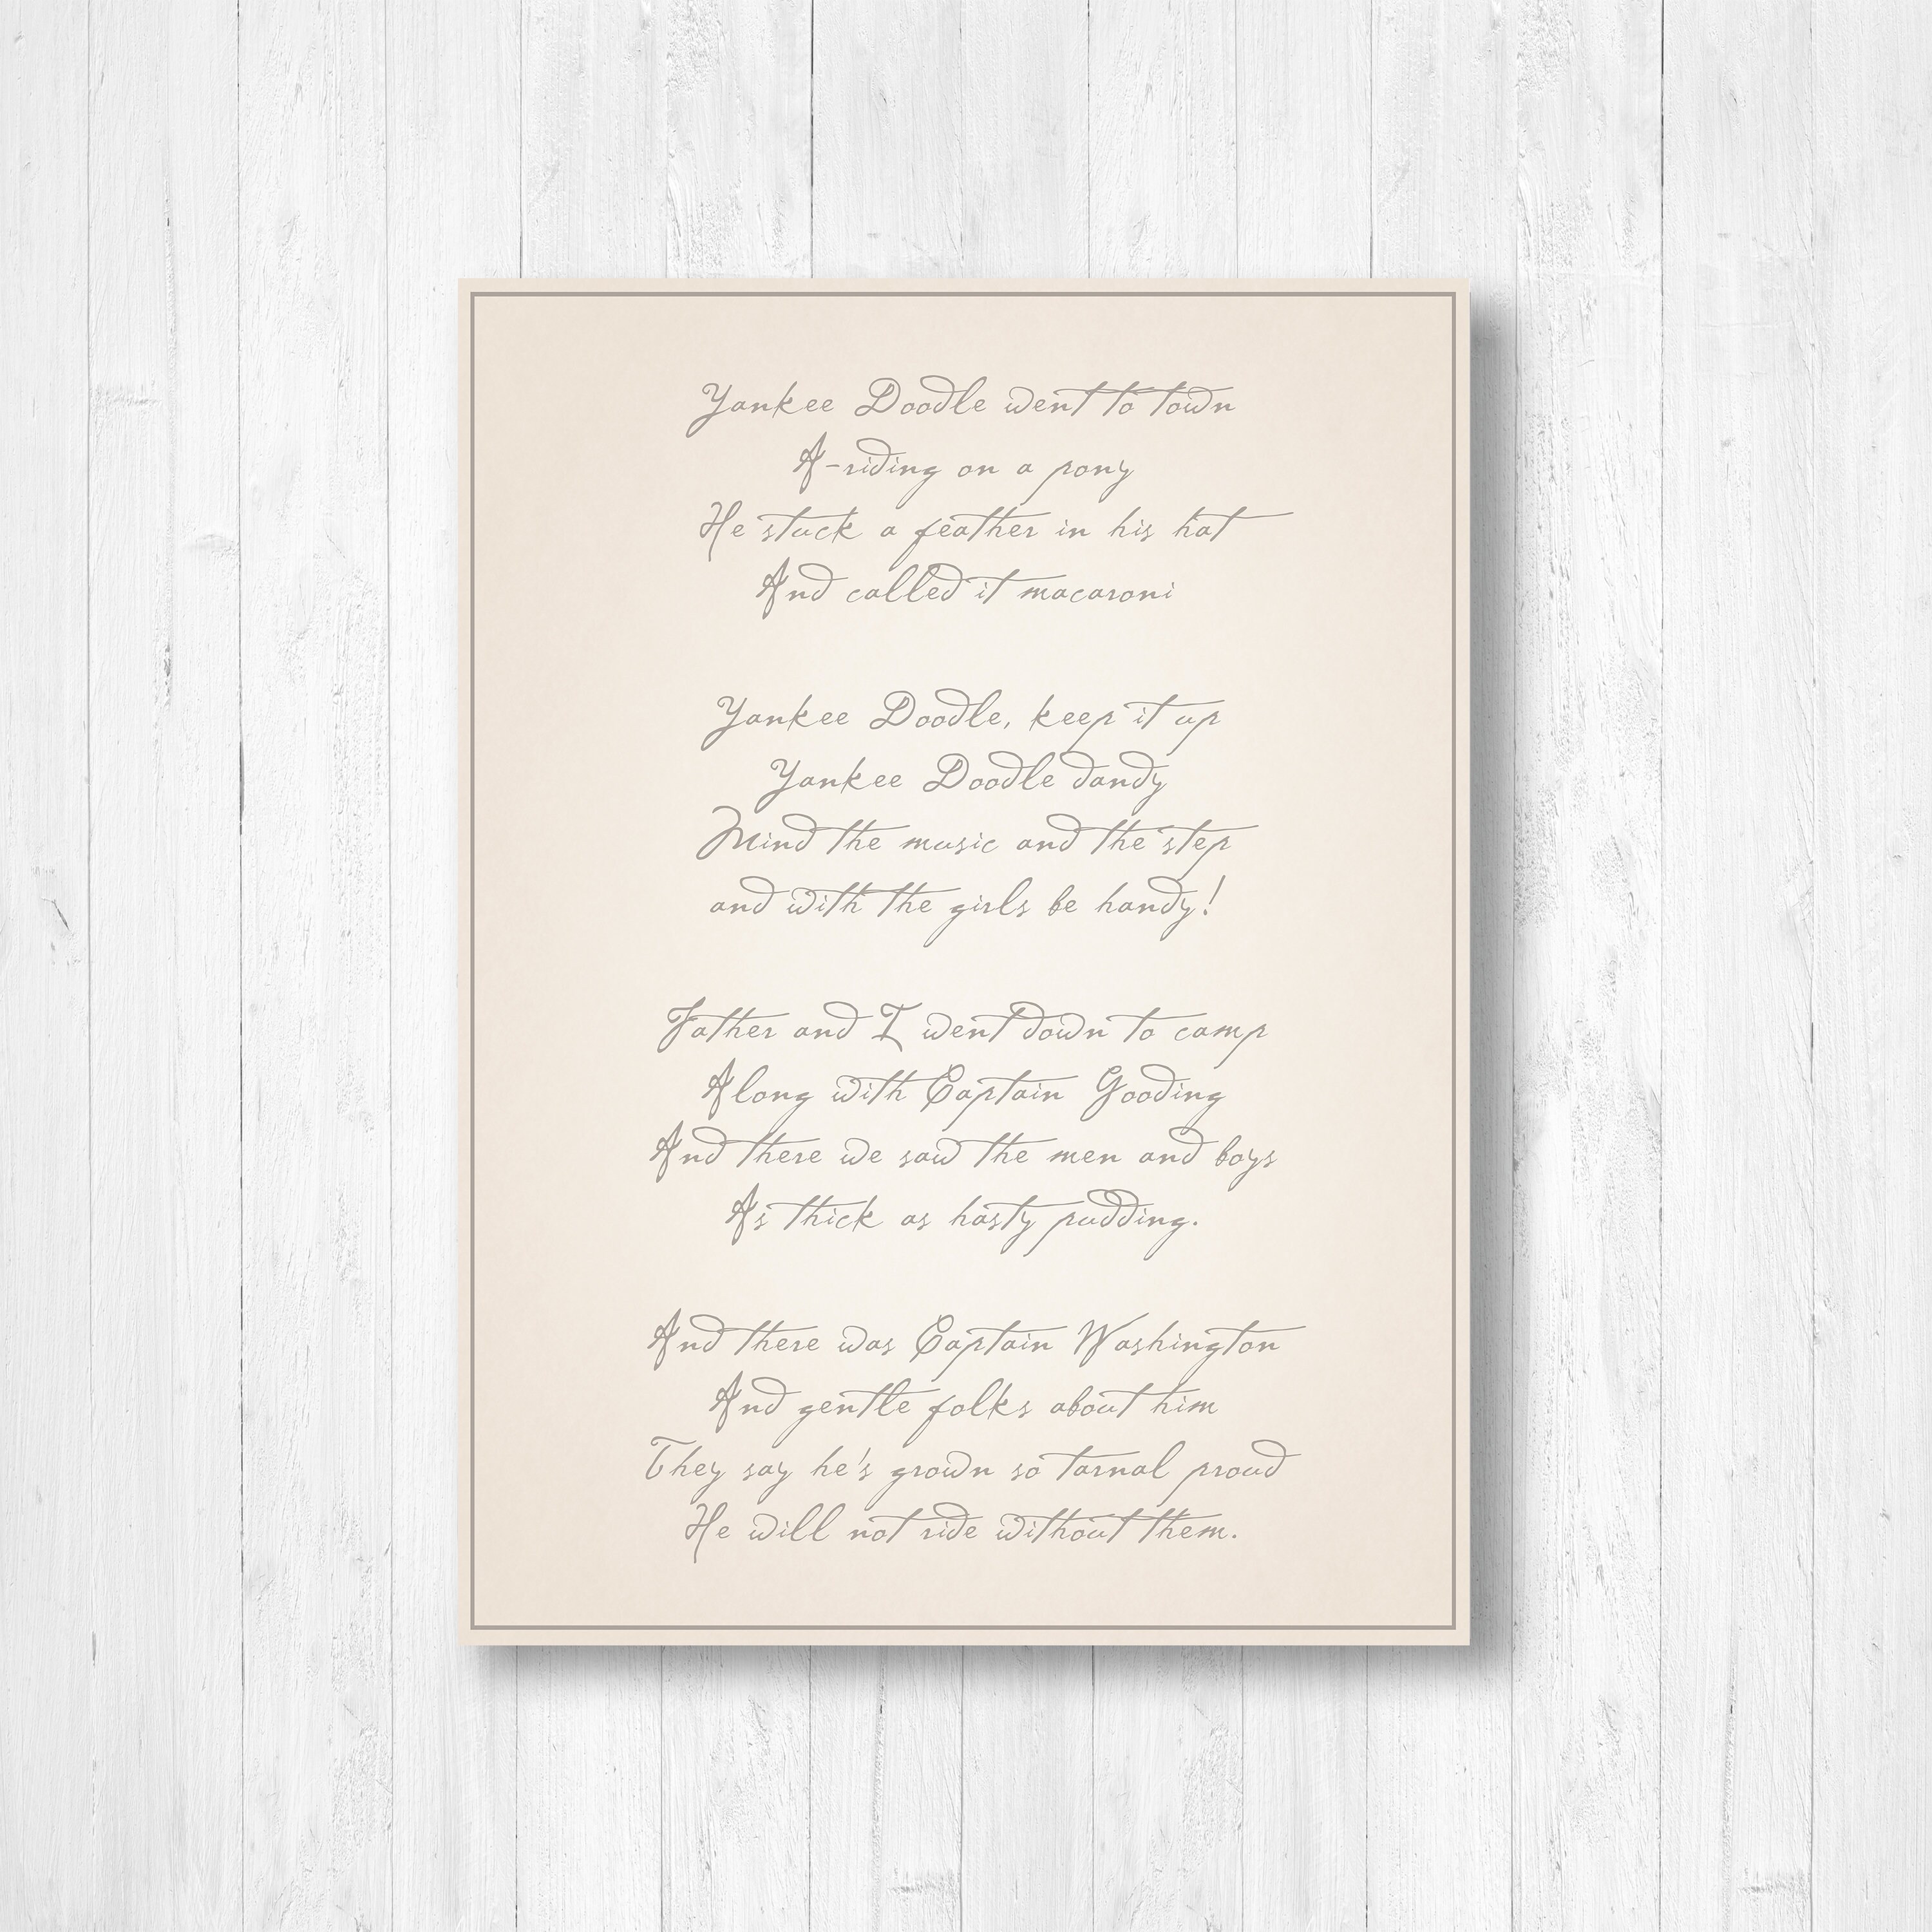 Yankee Doodle went to town
A-riding on a pony
He stuck a feather in his hat
And called it macaroni
Yankee Doodle, keep it up
Yankee Doodle dandy
Mind the music and the step
and with the girls be handy!
Father and I went down to camp
Along with Captain Gooding
And there we saw the men and boys
As thick as hasty pudding.
And there was Captain Washington
And gentle folks about him
They say he's grown so tarnal proud
He will not ride without them.